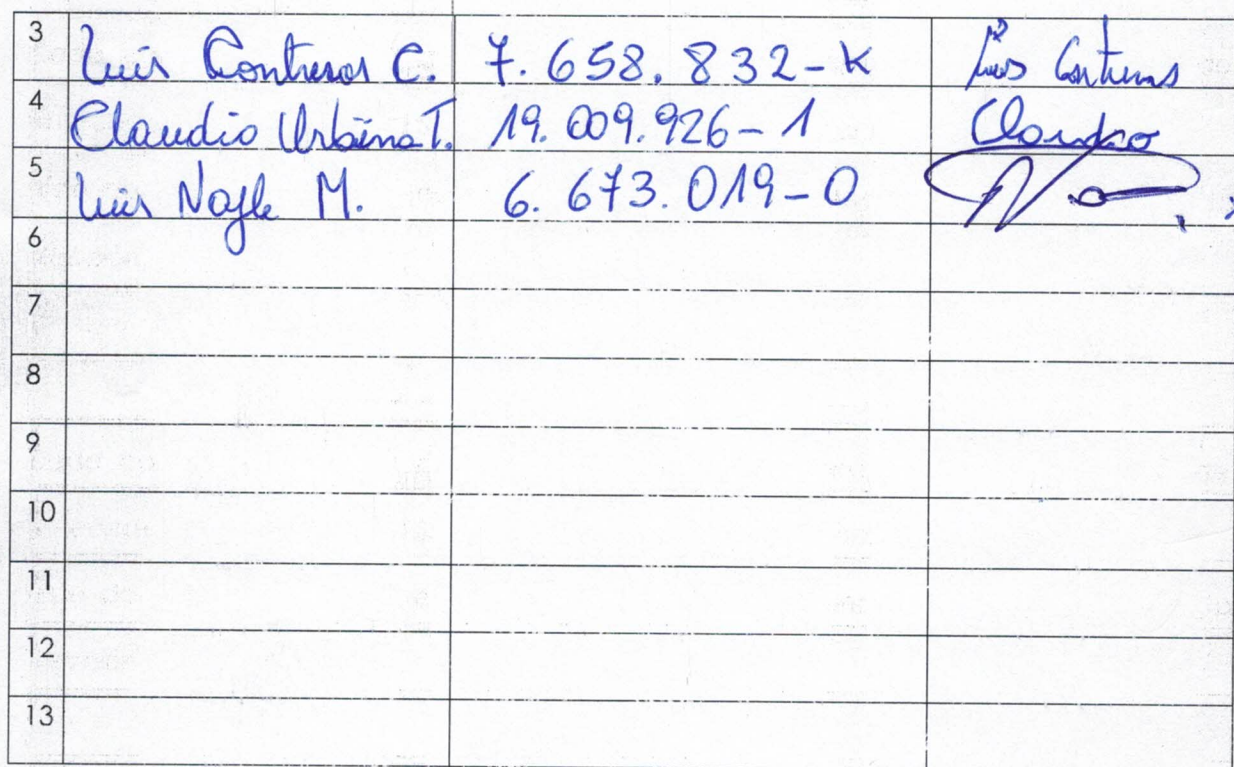 3 Luis Contreras C. 7.658.832-K Luis Contreras
4 Claudio Urbina T. 19.009.926-1 Claudio
5 Luis Nagle M. 6.673.019-0
6
7
8
9
10
11
12
13